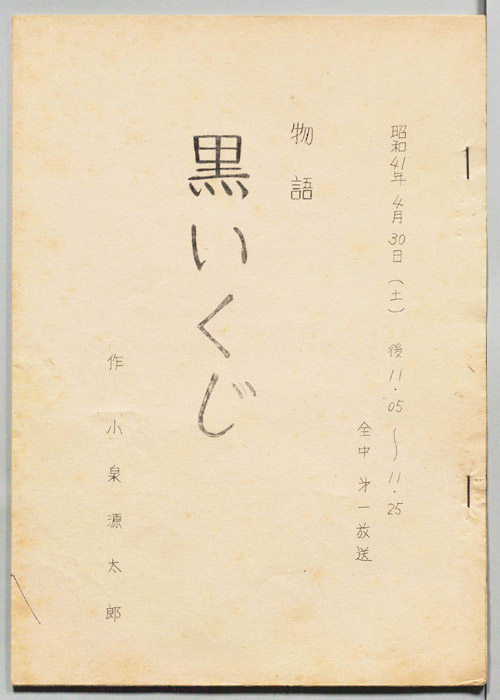 昭和41年4月30日(土) 後11.05〜11.25
全中 才一放送
物語
黒いくじ
作 小泉源太郎